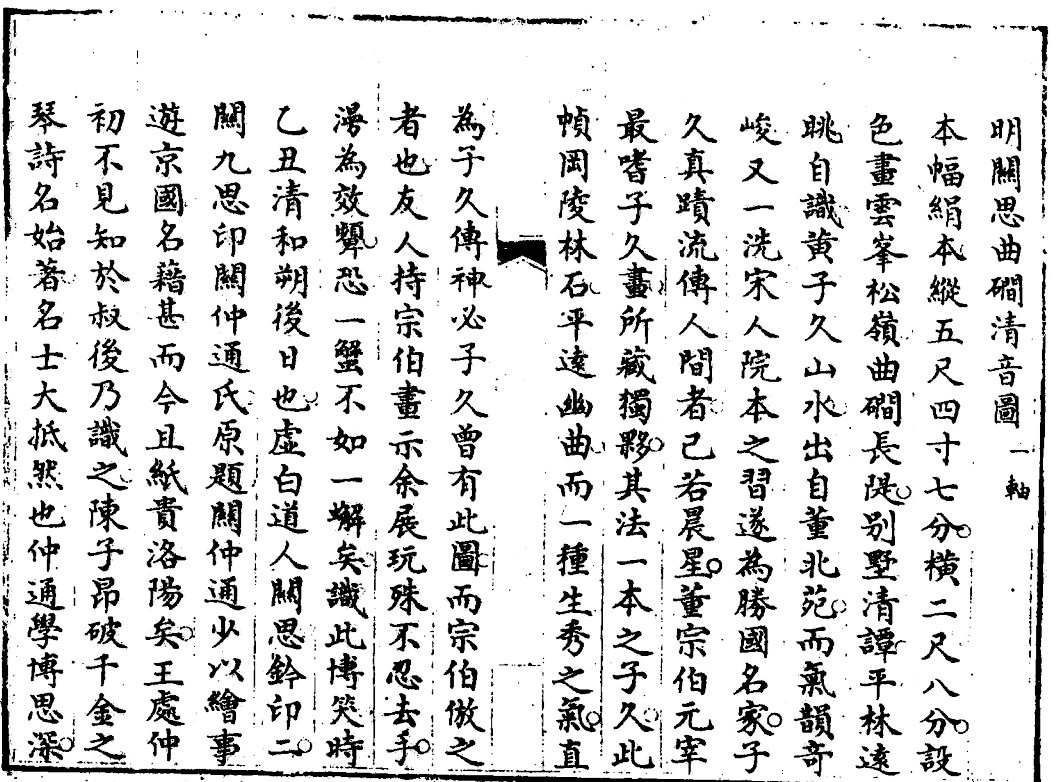 明關思曲磵清音圖一軸
本幅絹本縱五尺四寸七分橫二尺八分設
色畫雲峯松嶺曲磵長隄別墅清譚平林遠
眺自識黃子久山水出自董北苑而氣韻奇
峻又一洗宋人院本之習遂為勝國名家子
久真蹟流傳人間者已若晨星董宗伯元宰
最嗜子久畫所藏獨夥其法一本之子久此
幀岡陵林石平遠幽曲而一種生秀之氣直
為子久傳神必子久曾有此圖而宗伯倣之
者也友人持宗伯畫示余展玩殊不忍去手
漫為效顰恐一蟹不如一蠏矣識此博笑時
乙丑清和朔後日也虛白道人關思鈐印二
關九思印關仲通氏原題關仲通少以繪事
遊京國名藉甚而今且紙貴洛陽矣王處仲
初不見知於叔後乃識之陳子昂破千金之
琴詩名始著名士大抵然也仲通學博思深